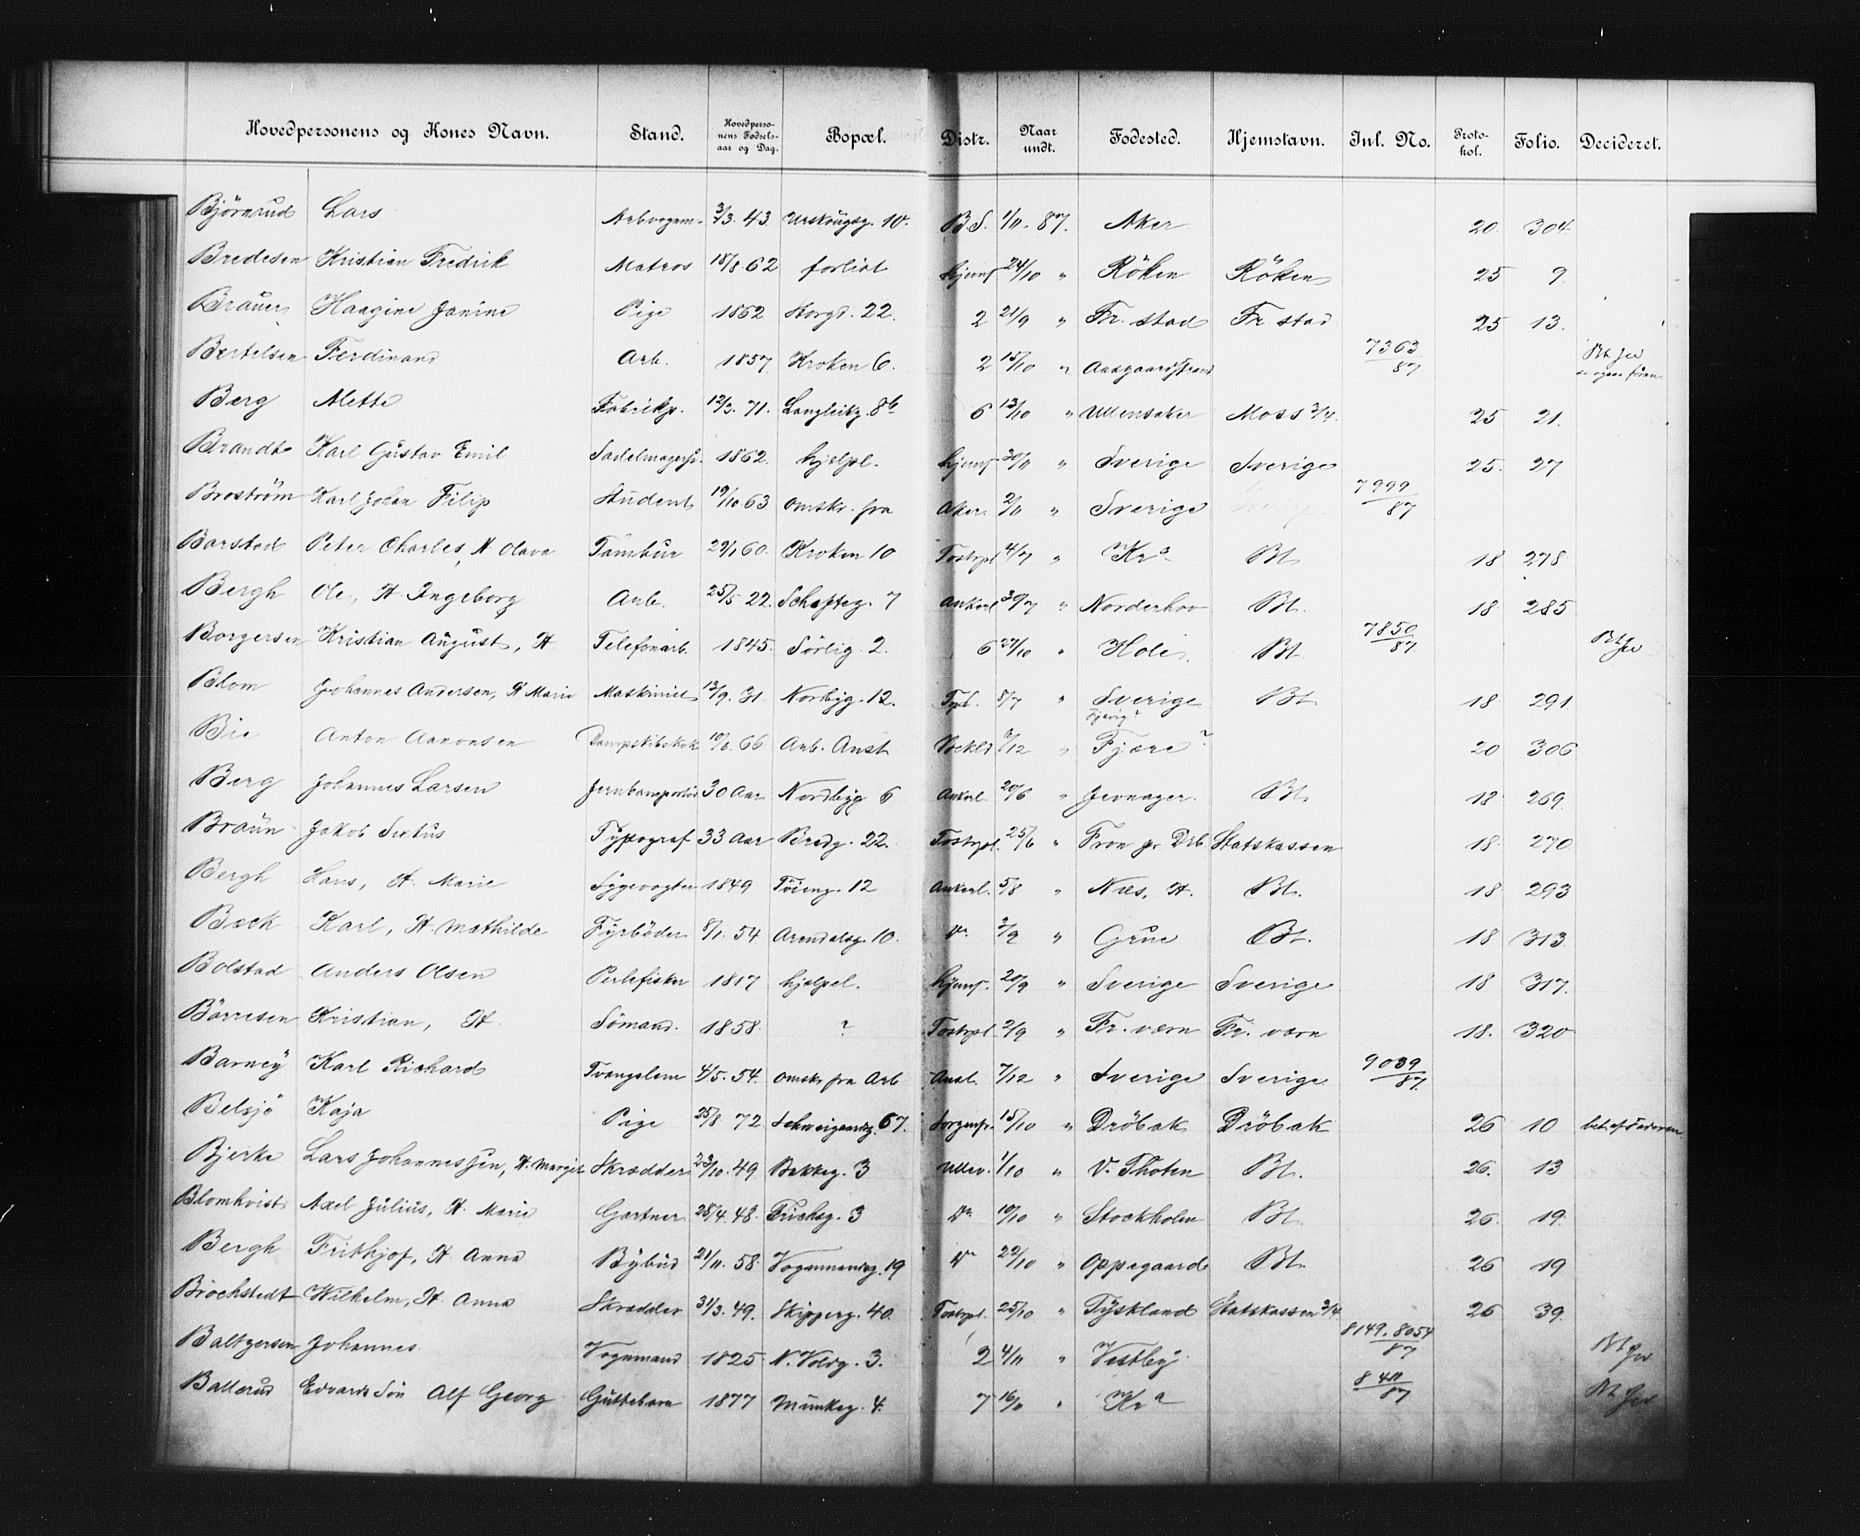 Hovedpersonens og Kones Navn. Stand. Hovedperso-nens Fødsels-aar og Dag. Bopæl. Distr. Naar undt. Fødested. Hjemstavn. Inl. No. Proto-kol. Folio. Decideret.
Björnrud Lars Arbvognm. 3/3. 43 Urskougsg. 10. B.S. 1/11. 87. Aker 20. 304.
Bredesen Kristian Fredrik Matros 18/8. 62 forlist hjemf 24/10 " Röken Röken 25 9.
Brauer Haagine Janine Pige 1862 Storgd. 22. 2 21/9 " Fr. stad Fr. stad 25 13.
Bertelsen Ferdinand Arb. 1857 Kroken 6. 2 15/10 " Aasgaardstrand 7363/87 Bt Jev
Berg Mette Fabrikp. 12/3. 71. Langleikg. 8b 6 13/10 " Ullensaker Moss 3/4. 25 21.
Brandt Karl Gustav Emil Sadelmagersv. 1862. hjelpl. hjemf 30/11 " Sverige Sverige 25. 27
Broström Karl Johan Filip Student 19/10 63 omskr. fra Aker. 2/11 " Sverige 7999/87
Barstad Peter Charles, H. Olava Tambur 29/1 60. Kroken 10 Tostrpl 4/7 " Kra Bt. 18 278
Bergh Ole, H. Ingeborg Arb. 25/5 22. Schafteg. 7 Ankerl 30/7 " Norderhov Bt. 18 285
Borgersen Kristian August, H. Telefonarb. 1845. Sörlig. 2. 6 27/10 " Hole Bt. 7850/87 Bt Jev
Blom Johannes Andersen, H. Marie Maskinist 13/9. 31. Nordbyg. 12. 8/7 " Sverige Bt. 18 291
Bie Anton Aanonsen Dampskibskok 19/6. 66 Arb. Anst 9/12 " Fjære ? 20 306
Berg Johannes Larsen 30 Aar Nordbyg 6 Ankerl. 20/6 " Jevnager. Bt. 18 269.
Braun Jakob Sextus Typograf 33 Aar Bredg. 22. Tostrpl. 25/6 " Fron pr Drb Statskassen 18. 270
Bergh Hans, H. Marie Sygevogter 1849 Töieng. 12 Ankerl. 5/8 " Næs, H. Bt. 18 293
Beck Karl, H. Mathilde Fyrböder 8/1. 54 Arendalsg. 10. Do 2/9 " Grue Bt. 18 313
Bolstad Anders Olsen Perlefisker 1817 hjelpel. hjemf. 20/9 " Sverige Sverige 18 317.
Börresen Kristian, H. Sömand. 1858. ? Tostrpl. 2/9 " Fr. værn Fr. værn 18. 320
Barney Karl Richard Tvangslem 4/5. 54. omskr fra Arb Anst. 7/12 " Sverige Sverige 9039/87
Belsjö Kaja Pige 25/8 72 Schweigaardsg. 67. Sorgenfr. 15/10 " Dröbak Dröbak 26 10 bet. af Faderen
Bjerke Lars Johannessen, H. Margit Skrædder 23/10. 49. Bakkeg. 3 Ullev. 1/10 " V. Thoten Bt. 26. 13
Blomkvist Axel Julius, H. Marie Gartner 28/4. 48. Frichsg. 3 Do 19/10 " Stockholm Bt. 26. 19.
Bergh Frithjof, H. Anna Bybud 21/11. 58. Vognmandsg. 19 Do 22/10 " Oppegaard Bt. 26 19
Brochstedt Wilhelm, H. Anna Skrædder 31/3. 49. Skipperg. 40. Tostrpl. 25/10 " Tyskland Statskassen 3/4 26 39.
Baltzersen Johannes. Vognmand 1825 N. Voldg. 3. 2 4/11 " Vestby 8149. 8054/87 Bt Jev
Ballerud Edvards Sön Alf Georg Guttebarn 1877 Munkeg. 4. 7 16/11 " Kra 8411/87 Bt Jev